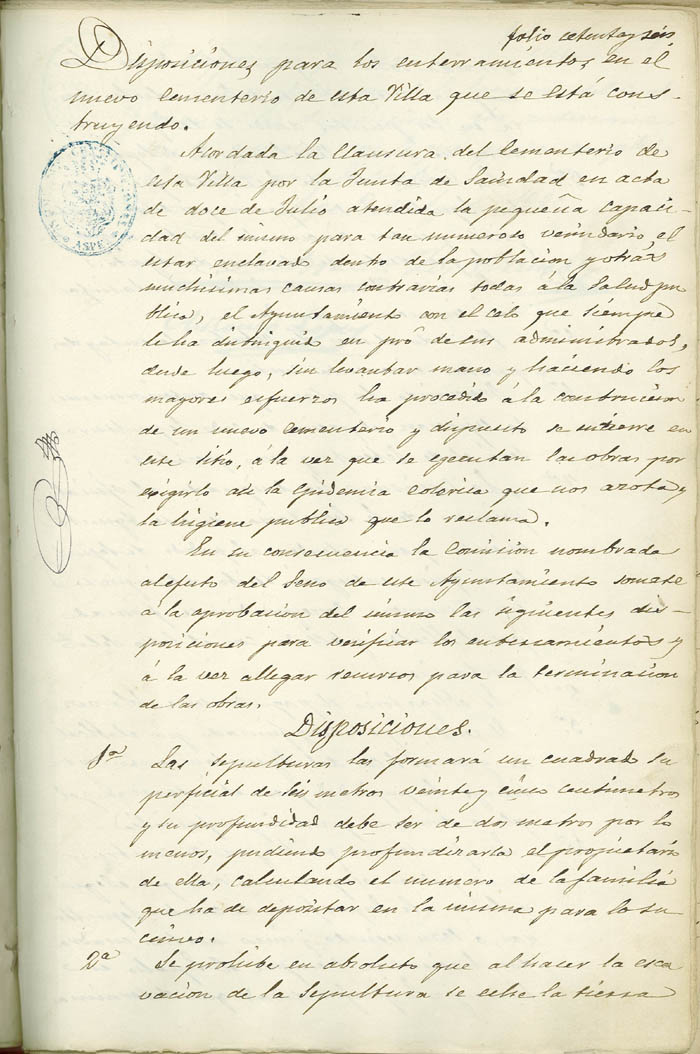 folio setenta y seis
Disposiciones para los enterramientos en el
nuevo Cementerio de esta Villa que se está cons-
truyendo.
Acordada la Clausura del Cementerio de
esta Villa por la Junta de Sanidad en acta
de doce de Julio atendida la pequeña capaci-
dad del mismo para tan numeroso vecindario, el
estar enclavado dentro de la poblacion y otras
muchisimas causas contrarias todas á la salud pu
blica, el Ayuntamiento con el celo que siempre
le ha distinguido en pró de sus administrados,
desde luego, sin levantar mano y haciendo los
mayores esfuerzos ha procedido á la construccion
de un nuevo cementerio y dispuesto se entierre en
este sitio, á la vez que se egecutan las obras por
exigirlo asi la Epidemia colerica que nos azota y
la higiene publica que lo reclama.
En su consecuencia la Comision nombrada
al efecto del Seno de este Ayuntamiento somete
á la aprobacion del mismo las siguientes dis-
posiciones para verificar los enterramientos y
á la vez allegar recursos para la terminacion
de las obras.
Disposiciones.
1ª Las sepulturas las formará un cuadrado su
perficial de seis metros veinte y cinco centimetros
y su profundidad debe ser de dos metros por lo
menos, pudiendo profundizarla el propietario
de ella, calculando el numero de la familia
que ha de depositar en la misma para lo su
cesivo.
2ª Se prohibe en absoluto que al hacer la esca
vacion de la Sepultura se eche la tierra
ASPE